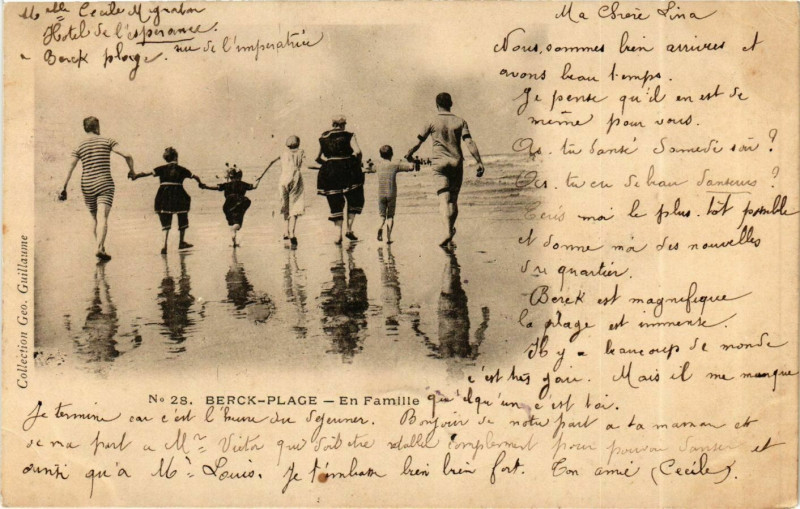 Melle Cecile Mignaton
Hotel de l'esperance.
rue de l'imperatrice
a Berck plage.
Ma Chère Lina
Nous, sommes bien arrivées et
avons beau temps.
Je pense qu'il en est de
même pour vous.
As. tu dansé Samedi soir ?
As. tu eu de beau danseurs ?
Ecris moi le plus. tôt possible
et donne moi des nouvelles
du quartier.
Berck est magnifique
la plage est immense.
Il y a beaucoup de monde
c'est très gai. Mais il me manque
qu'elqu'un c'est toi.
Collection Geo. Guillaume
No 28. BERCK-PLAGE — En Famille
Je termine car c'est l'heure du dejeuner. Bonjour de notre part a ta maman et
de ma part a Mr Victor qui doit être rétabli complement pour pouvoir danser et
ainsi qu'à Mr Louis. Je t'embrasse bien bien fort. Ton amie (Cecile).